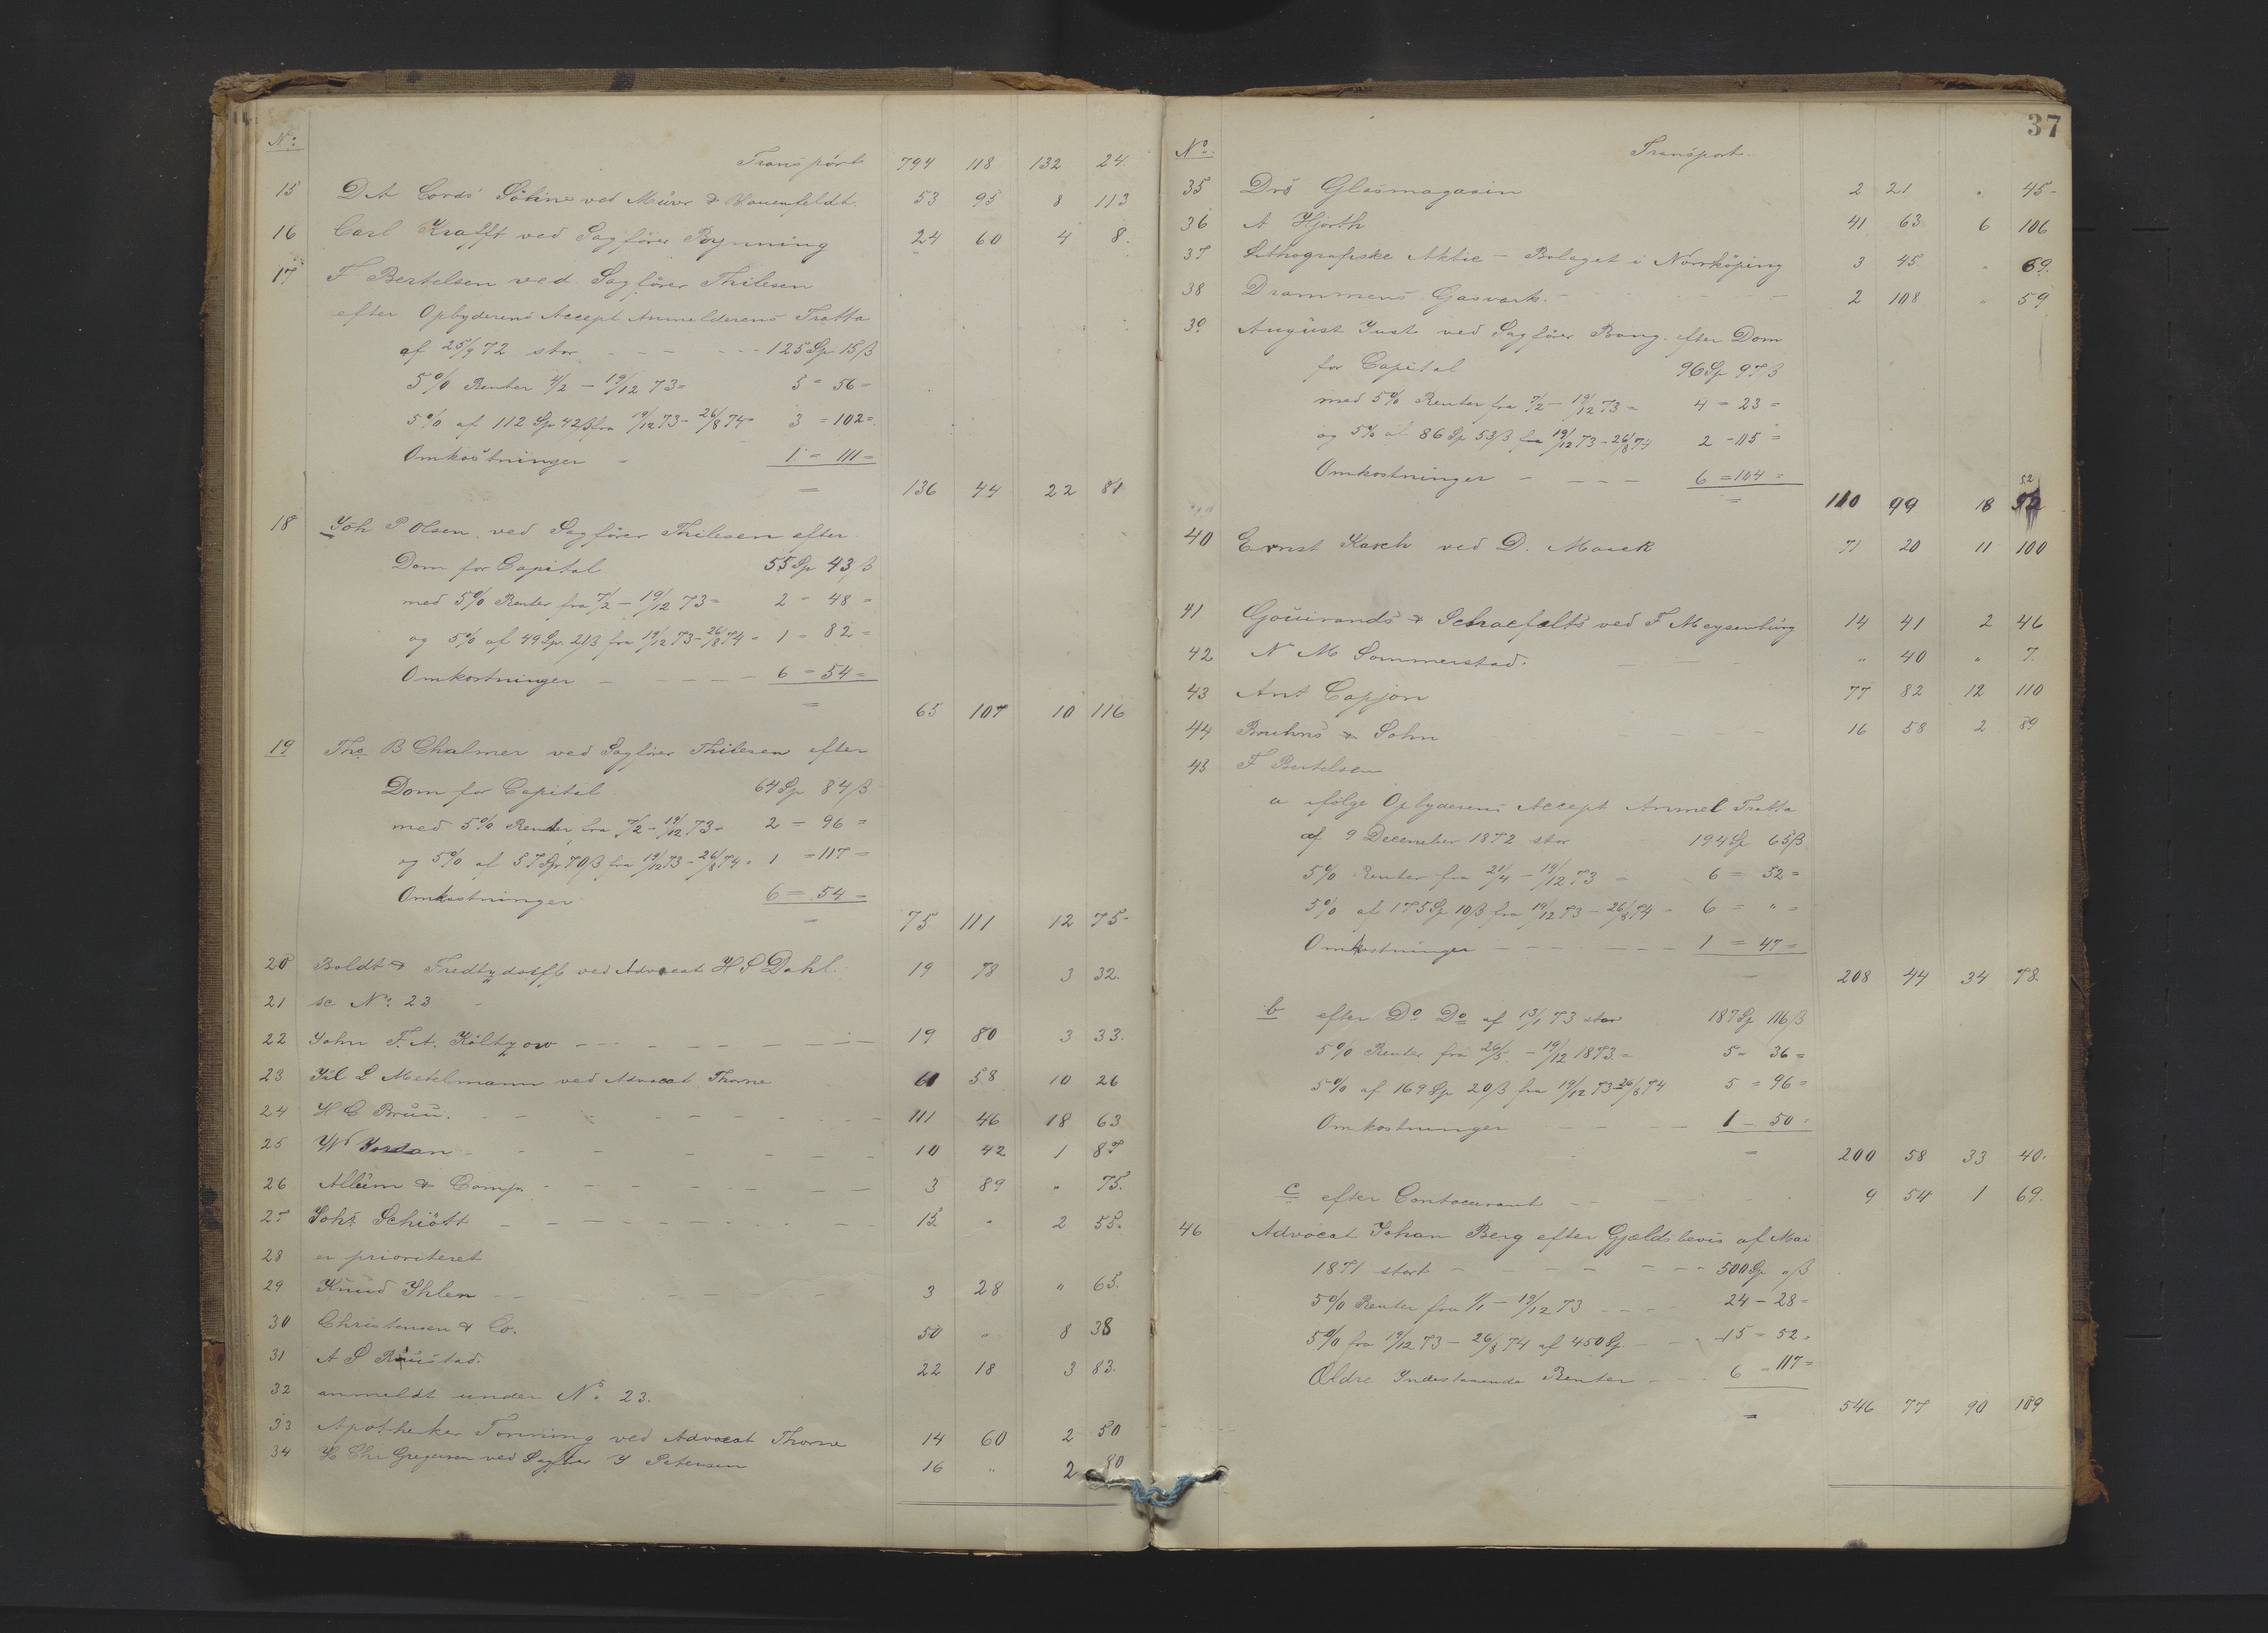 No:
Transport 794 118 132 24.
15 D A Cords' Söhne ved Muur & Hauenfeldt. 53 95 8 113
16 Carl Krafft ved Sagfører Rynning 24 60 4 8.
17 F Bertelsen ved Sagfører Thilesen
efter Opbyderens Accept Anmelderens Tratta
af 25/9 72 stor - - - - - 125 Sp 15 ß
5% Renter 4/2 - 19/12 73 = 3 = 56 =
5% af 112 Sp 42 ß fra 19/12 73 - 26/8 74 = 3 = 102 =
Omkostninger = 1 = 111 =
= 136 44 22 81
18 Joh P Olsen ved Sagfører Thilesen efter
Dom for Capital 55 Sp 43 ß
med 5% Renter fra 7/2 - 19/12 73 = 2 - 48 =
og 5% af 49 Sp 21 ß fra 19/12 73 - 26/8 74 = 1 = 82 =
Omkostninger - - - - - 6 = 54 =
= 65 107 10 116
19 Tho B Chalmer ved Sagfører Thilesen efter
Dom for Capital 64 Sp 84 ß
med 5% Renter fra 7/2 - 19/12 73 = 2 = 96 =
og 5% af 57 Sp 70 ß fra 19/12 73 - 26/8 74 = 1 = 117 =
Omkostninger 6 = 54 =
= 75 111 12 75.
20 Boldt & ved Advocat H S Dahl. 19 78 3 32.
21 se No: 23 -
22 John F. A. Költzow - - - - - 19 80 3 33.
23 Jül L Metelmann ved Advocat Thorne 60 58 10 26
24 H C Bruu. - - - - - 111 46 18 63
25 W Jordan - - - - - 10 42 1 87
26 Allum & Comp. - - - - - 3 89 " 75.
27 Johs Schiött - - - - - 15 " 2 55.
28 er prioriteret
29 Knud Ihlen - - - - - 3 28 " 65.
30 Christensen & Co. 50 " 8 38
31 A S Ruustad. 22 18 3 83.
32 anmeldt under No. 23.
33 Apotheker Tønning ved Advocat Thorne 14 60 2 50
34 H Chr Gregersen ved Sagfører J Petersen 16 " 2 80
37
No.
Transport
35 Drs Glasmagasin 2 21 " 45-
36 A Hjorth 41 63 6 106
37 Lithografiske Aktie - Bolaget i Norrköping 3 45 " 69.
38 Drammens Gasværk. - - - 2 108 " 59
39 August Juste ved Sagfører Bang. efter Dom
for Capital 96 Sp 97 ß
med 5% Renter fra 7/2 - 19/12 73 = 4 = 23 =
og 5% af 86 Sp 53 ß fra 19/12 73 - 26/8 74 2 - 115 =
Omkostninger - - - - 6 = 104 =
52
= 110 99 18 52
40 Ernst Karch ved D. Masek 71 20 11 100
41 Gouirands & Schaefalts ved F Meysenburg 14 41 2 46
42 N M Sommerstad. - - - " 40 " 7.
43 Ant Capjon 77 82 12 110
44 Bruhns & Sohn - - - 16 58 2 89
43 F Bertelsen
a ifølge Opbyderens Accept Anmel Tratta
af 9 December 1872 stor 194 Sp 65 ß
5% Renter fra 21/4 - 19/12 73 = 6 = 52 =
5% af 175 Sp 10 ß fra 19/12 73 - 26/8 74 = 6 = " =
Omkostninger - - - - - 1 = 47 =
- 208 44 34 78.
b efter Do Do af 13/1 73 stor 187 Sp 116 ß
5% Renter fra 26/5 - 19/12 1873 = 5 = 36 =
5% af 169 Sp 20 ß fra 19/12 73 - 26/8 74 5 = 96 =
Omkostninger - - - - 1 - 50 =
= 200 58 33 40.
c efter Contocurant - - - 9 54 1 69.
46 Advocat Johan Berg efter Gjældsbevis af Mai
1871 stort - - - - - 500 Sp " ß
5% Renter fra 1/1 - 19/12 73 - - - - 24 - 28 =
5% fra 19/12 73 - 26/8 74 af 450 Sp. - - - 15 = 52 =
Ældre Indestaaende Renter - - - 6 = 117 =
= 546 77 90 109